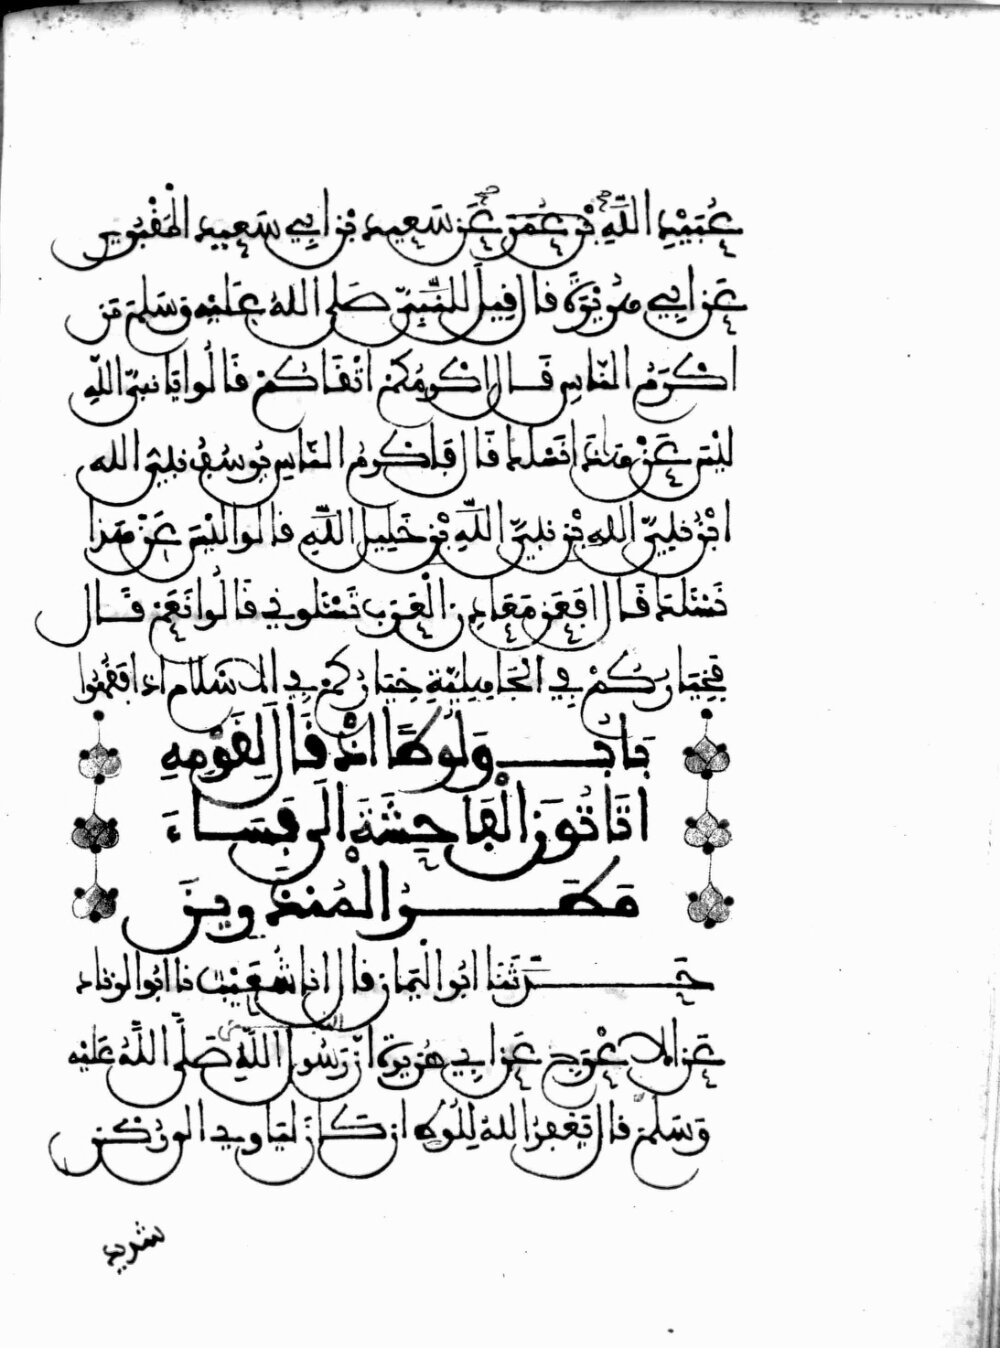 عُبَيْدِ اللَّهِ بْنِ عُمَرَ عَن سَعِيدِ بْنِ أبِي سَعِيدٍ الْمَقْبُرِيِّ
عَن ابِي هُرَيْرَةَ قال قِيلَ لِلنَّبِيِّ صَلى اللهُ عَلَيْهِ وَسَلم مَن
اكْرَمُ النَّاسِ قَال اكْرمُكُمْ اتْقَاكُمْ قَالُوا يَا نبيَّ اللَّهِ
لَيْسَ عَنْ هَذَا نَسْئلك قَال فَاكْرمُ النَّاسِ يُوسُفُ نبِيُّ الله
ابْنُ نَبِيِّ اللهِ بْنِ نبِيِّ اللَّهِ بْنِ خَلِيلِ اللَّهِ قالوا لَيْسَ عَنْ هَذا
نَسْئلك قَال افَعَن مَعَادِنِ الْعَرَبِ تَسْئلونِي قَالُوا نَعَمْ قَال
فَخِيَارُكُمْ فِي الْجَاهِلِيَّةِ خِيَارُكُمْ فِي الاسْلَامِ اذا فَقُهُوا
بَابُ وَلُوطًا اذْ قَال لِقَوْمِهِ
اتَاتُونَ الْفَاحِشَةَ الَى فَسَاءَ
مَطَرُ الْمُنْذَرِينَ
حَدَّثَنَا ابُو الْيَمَانِ قال انا شُعَيْبٌ نا ابُو الزناد
عَن الاعْرَجِ عَن ابِي هُرَيرَةَ انّ رَسُولَ اللَّهِ صَلَّى اللَّهُ عَلَيْهِ
وَسَلمَ قال يَغْفِرُ اللهُ لِلُوطٍ ان كَانَ لَيَاوِي الى رُكْنٍ
شديد